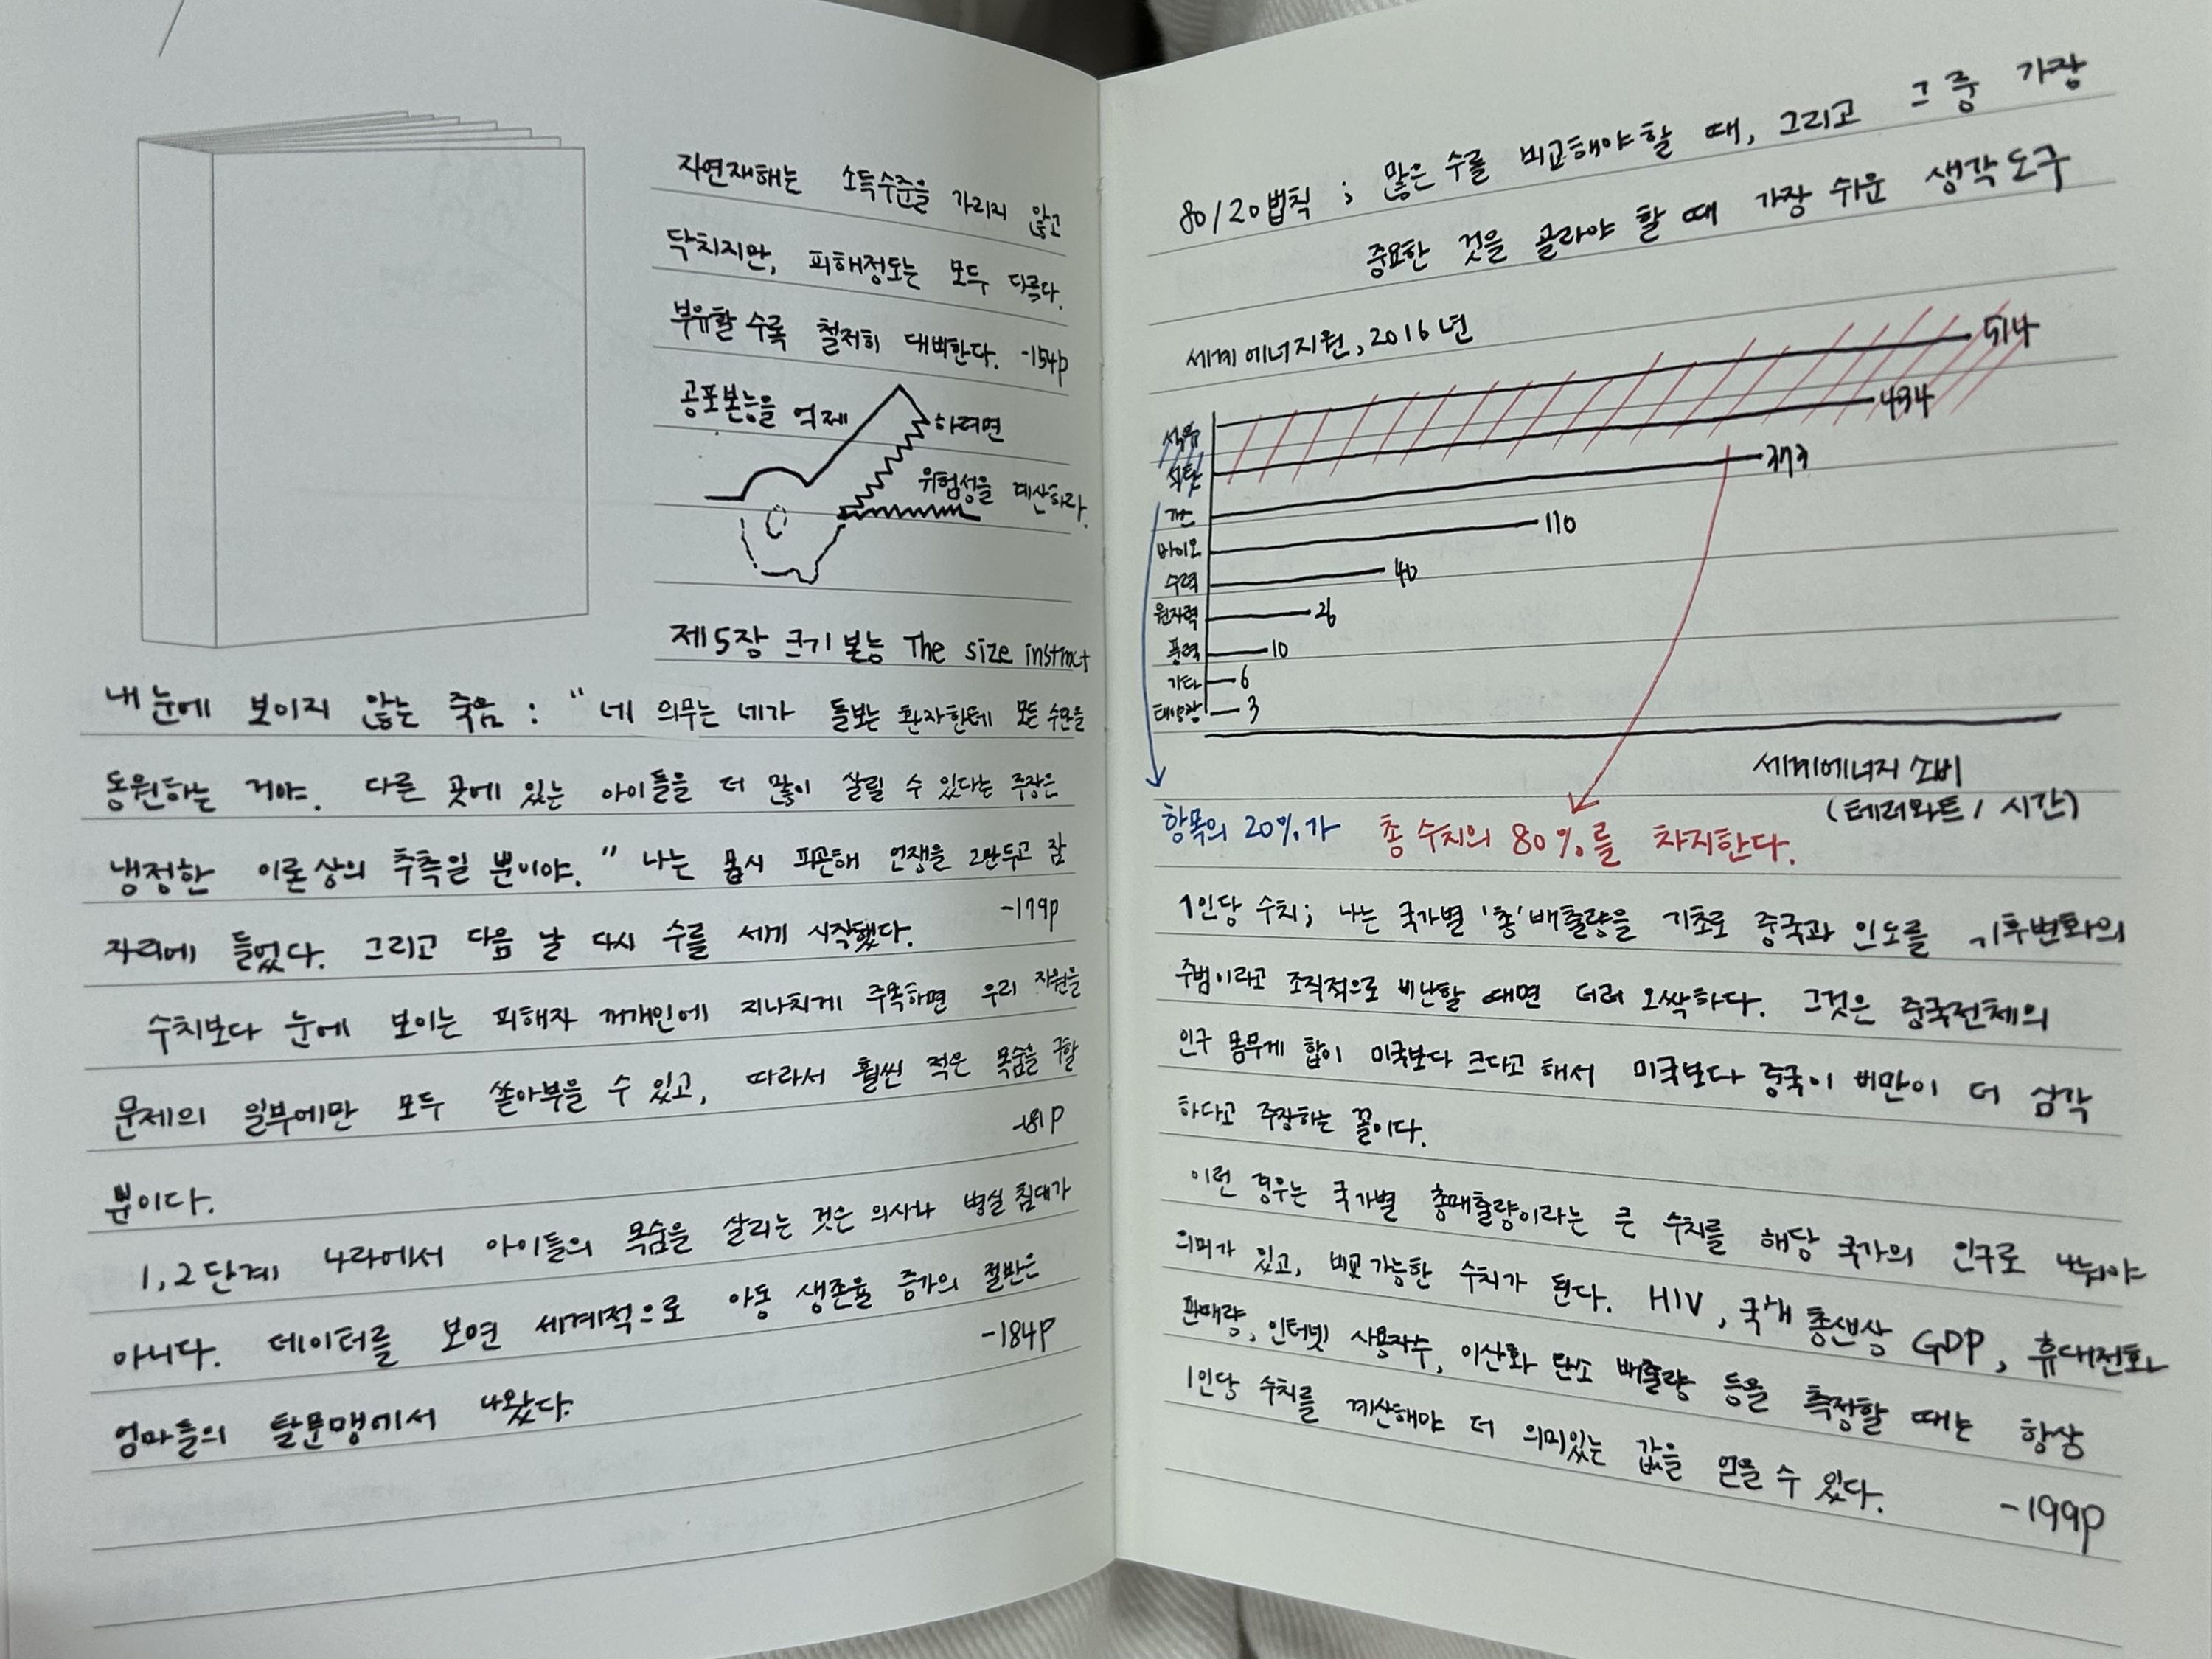 자연재해는 소득수준을 가리지 않고
닥치지만, 피해정도는 모두 다르다.
부유할 수록 철저히 대비한다. -154p
공포본능을 억제 하려면
위험성을 계산하라.
제5장 크기 본능 The size instinct
내 눈에 보이지 않는 죽음 : "네 의무는 네가 돌보는 환자한테 모든 수단을
동원하는 거야. 다른 곳에 있는 아이들을 더 많이 살릴 수 있다는 주장은
냉정한 이론상의 추측일 뿐이야." 나는 몹시 피곤해 언쟁을 그만두고 잠
자리에 들었다. 그리고 다음 날 다시 수를 세기 시작했다. -179p
수치보다 눈에 보이는 피해자 개개인에 지나치게 주목하면 우리 자원을
문제의 일부에만 모두 쏟아부을 수 있고, 따라서 훨씬 적은 목숨을 구할
뿐이다. -181p
1, 2단계 나라에서 아이들의 목숨을 살리는 것은 의사나 병실 침대가
아니다. 데이터를 보면 세계적으로 아동 생존율 증가의 절반은
엄마들의 탈문맹에서 나왔다. -184p
80/20법칙 ; 많은 수를 비교해야할 때, 그리고 그 중 가장
중요한 것을 골라야 할 때 가장 쉬운 생각도구
세계 에너지원, 2016년
석유 514
석탄 434
가스 373
바이오 110
수력 40
원자력 26
풍력 10
기타 6
태양광 3
세계에너지 소비
(테러와트 / 시간)
항목의 20%가 총 수치의 80%를 차지한다.
1인당 수치; 나는 국가별 '총'배출량을 기초로 중국과 인도를 기후변화의
주범이라고 조직적으로 비난할 때면 더러 오싹하다. 그것은 중국전체의
인구 몸무게 합이 미국보다 크다고 해서 미국보다 중국이 비만이 더 심각
하다고 주장하는 꼴이다.
이런 경우는 국가별 총배출량이라는 큰 수치를 해당 국가의 인구로 나눠야
의미가 있고, 비교 가능한 수치가 된다. HIV, 국내 총생상 GDP, 휴대전화
판매량, 인터넷 사용자수, 이산화 탄소 배출량 등을 측정할 때는 항상
1인당 수치를 계산해야 더 의미있는 값을 얻을 수 있다. -199p